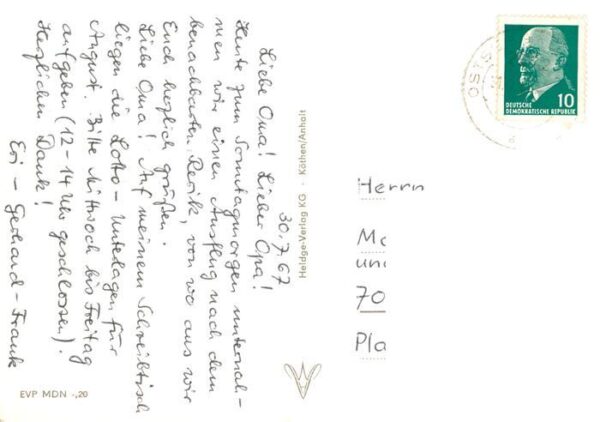 30.7.67
Liebe Oma! Lieber Opa!
Heute zum Sonntagmorgen unterneh-
men wir einen Ausflug nach dem
benachbarten Rerik, von wo aus wir
Euch herzlich grüßen.
Liebe Oma! Auf meinem Schreibtisch
liegen die Lotto-Unterlagen für
August. Bitte Mittwoch bis Freitag
aufgeben (12-14 Uhr geschlossen).
Herzlichen Dank!
Evi - Gerhard - Frank
Heldge-Verlag KG · Köthen/Anhalt
EVP MDN -,20
OSTS
DEUTSCHE
DEMOKRATISCHE REPUBLIK
10
Herrn
und
70
Pla